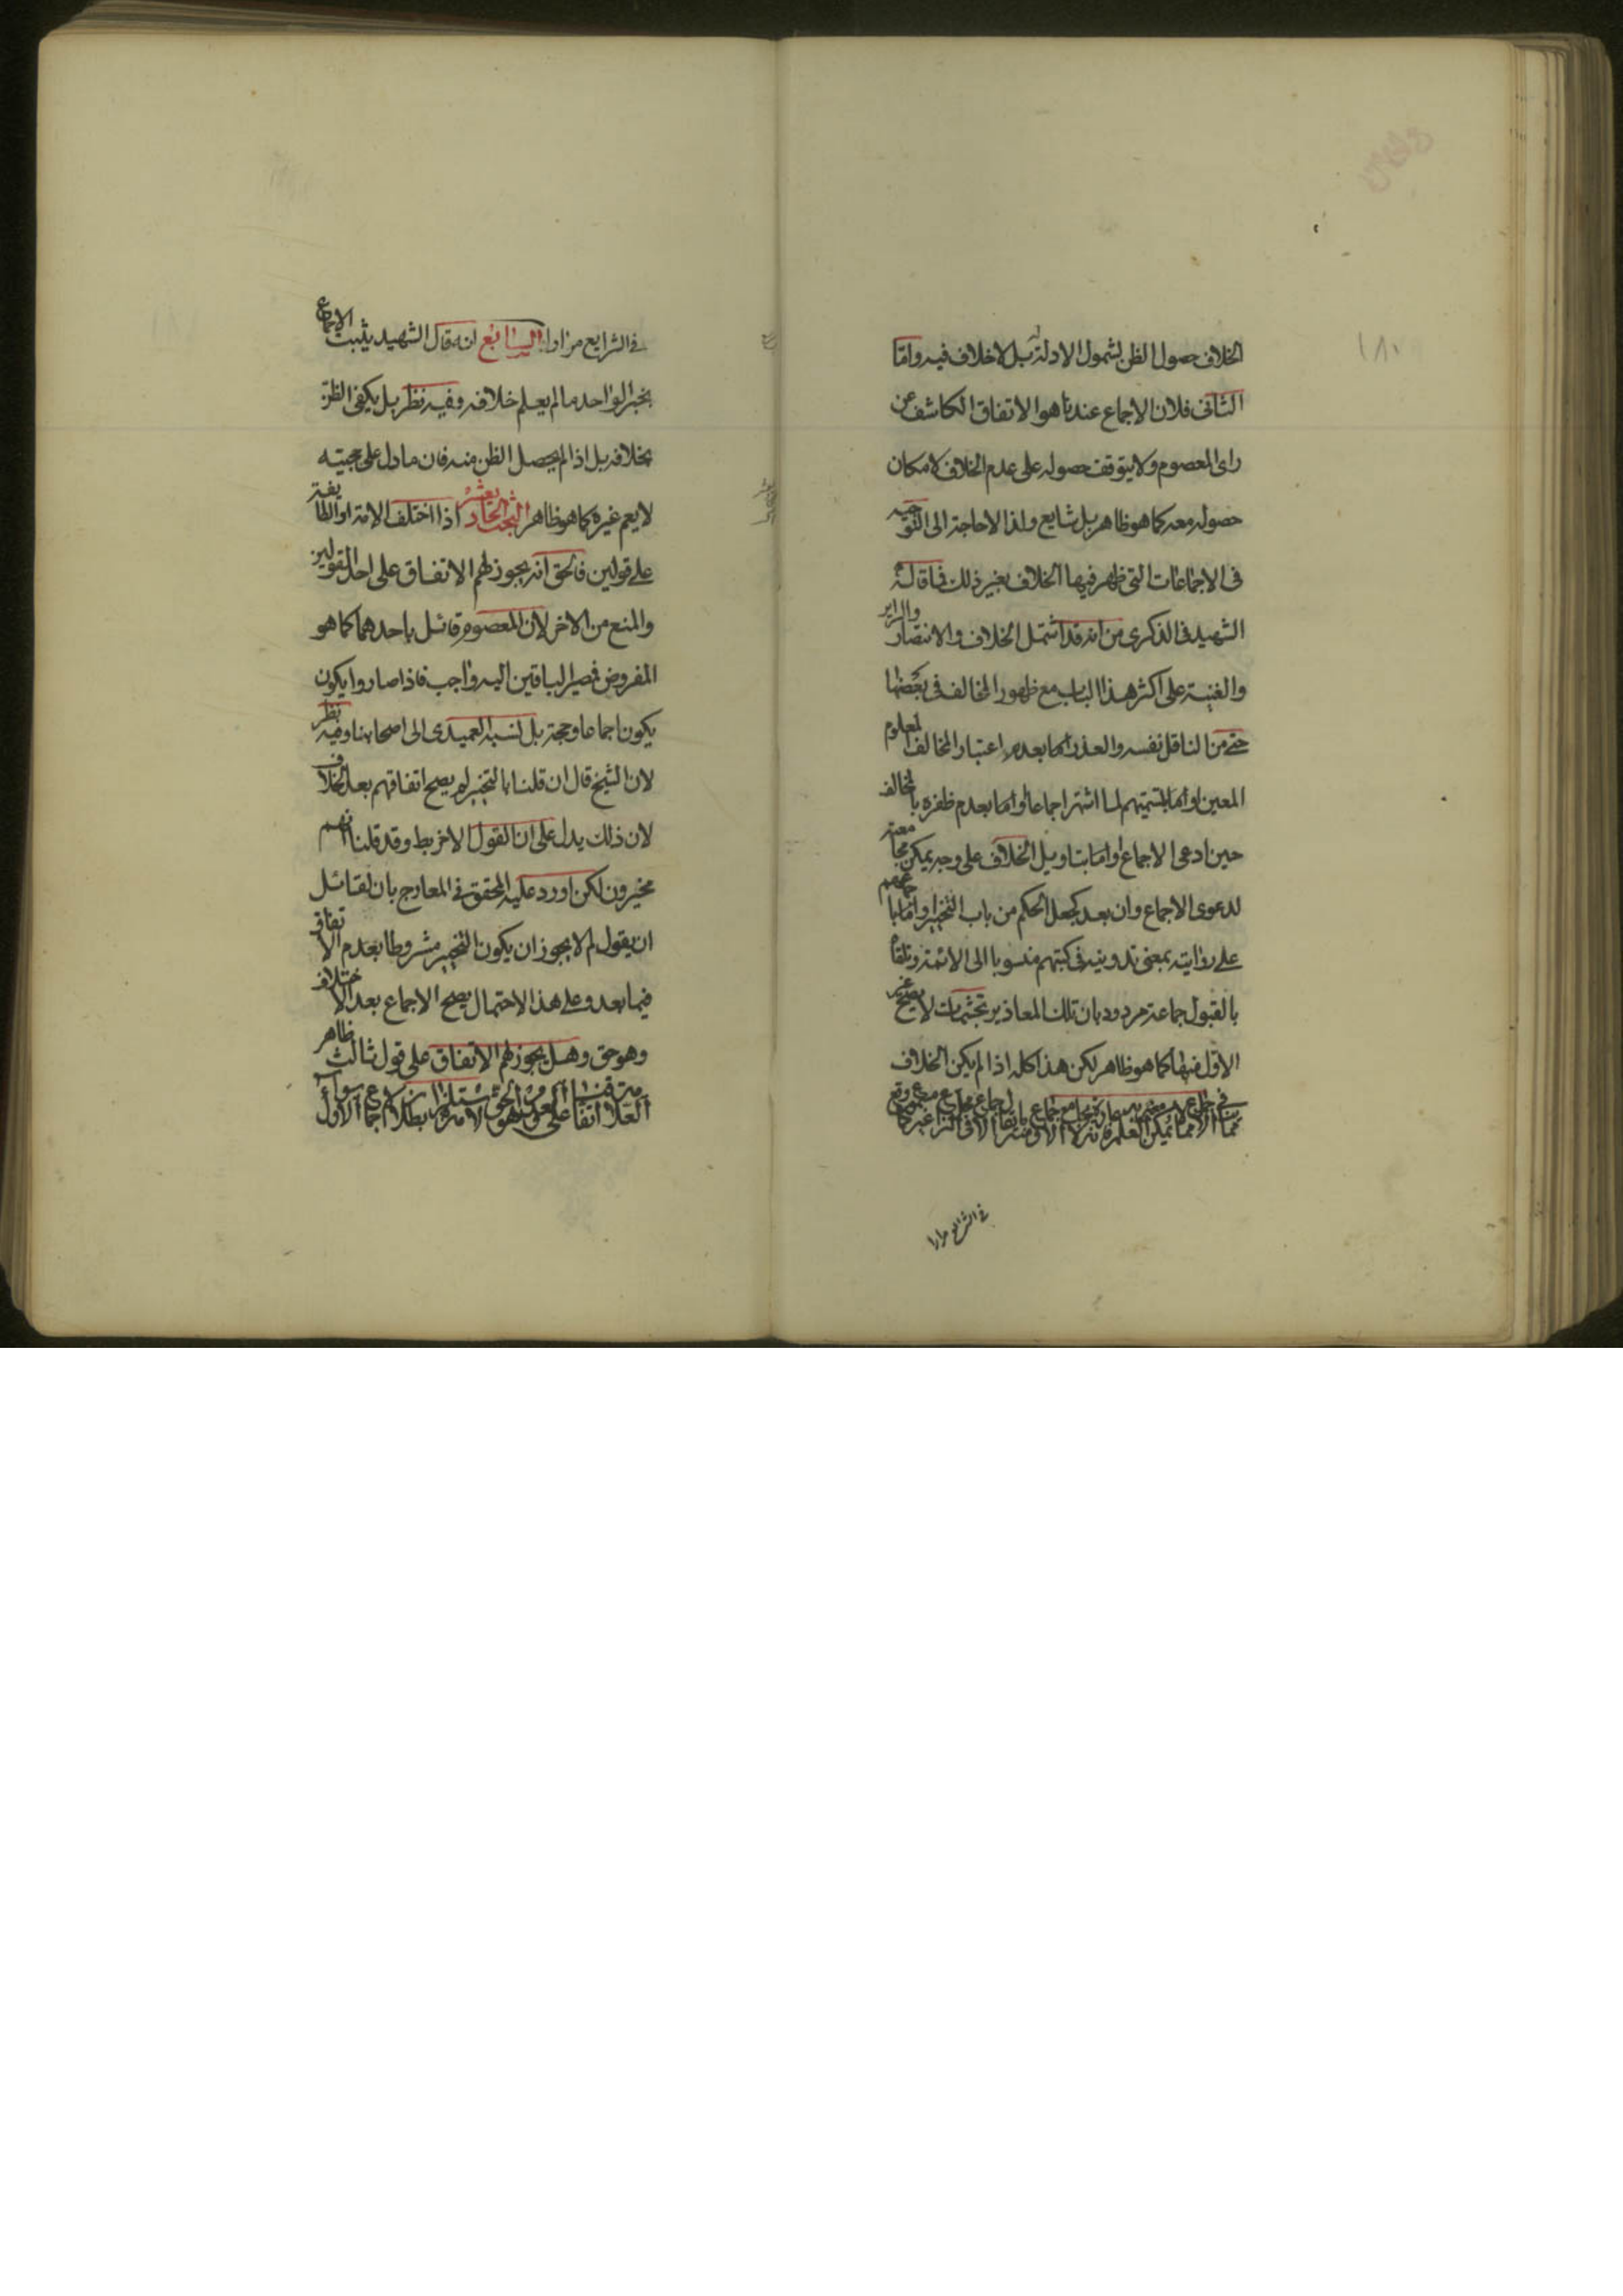 ١٨٠
الخلاف حصول الظن لشمول الادلة بل لا خلاف فيه واما
الثانى فلان الاجماع عندنا هو الاتفاق الكاشف عن
راى المعصوم ولا يتوقف حصوله على عدم الخلاف لامكان
حصوله معه كما هو ظاهر بل شايع ولذا لا حاجة الى التوجيه
فى الاجماعات التى ظهر فيها الخلاف بغير ذلك فما قاله
الشهيد فى الذكرى من انه قد اشتمل الخلاف والانتصار والسراير
والغنية على اكثر هذا الباب مع ظهور المخالف فى بعضها
حتى من الناقل نفسه والعذر اما بعدم اعتبار المخالف المعلوم
المعين او اما لتسميتهم لما اشتهر اجماعا واما بعدم ظفره بالمخالف
حين ادعى الاجماع او اما بتاويل الخلاف على وجه يمكن مجامعته
لدعوى الاجماع وان بعد كجعل الحكم من باب التخيير واما باجماعهم
على روايته بمعنى تدوينه فى كتبهم منسوبا الى الائمة وتلقاه
بالقبول جماعة مردود بان تلك المعاذير تجشمات لا يصح غير
الاول منها كما هو ظاهر لكن هذا كله اذا لم يكن الخلاف
فى الشرايع مرارا
فى الشرايع مرارا السابع انه قال الشهيد يثبت الاجماع
بخبر الواحد ما لم يعلم خلافه وفيه نظر بل يكفى الظن
بخلافه بل اذا لم يحصل الظن منه فان ما دل على حجيته
لا يعم غيره كما هو ظاهر البحث الحادي عشر اذا اختلف الامة او الطائفة
على قولين فالحق انه يجوز لهم الاتفاق على احد القولين
والمنع من الاخر لان المعصوم قائل باحدهما كما هو
المفروض فمصير الباقين اليه واجب فاذا صاروا يكون
يكون اجماعا وحجة بل نسبه العميدى الى اصحابنا وفيه نظر
لان الشيخ قال ان قلنا بالتخيير لم يصح اتفاقهم بعد الخلاف
لان ذلك يدل على ان القول الاخر بط وقد قلنا انهم
مخيرون لكن اورد عليه المحقق فى المعارج بان لقائل
ان يقول لم لا يجوز ان يكون التخيير مشروطا بعدم الاتفاق
فيما بعد وعلى هذا الاحتمال يصح الاجماع بعد الاختلاف
وهو حق وهل يجوز لهم الاتفاق على قول ثالث ظاهر